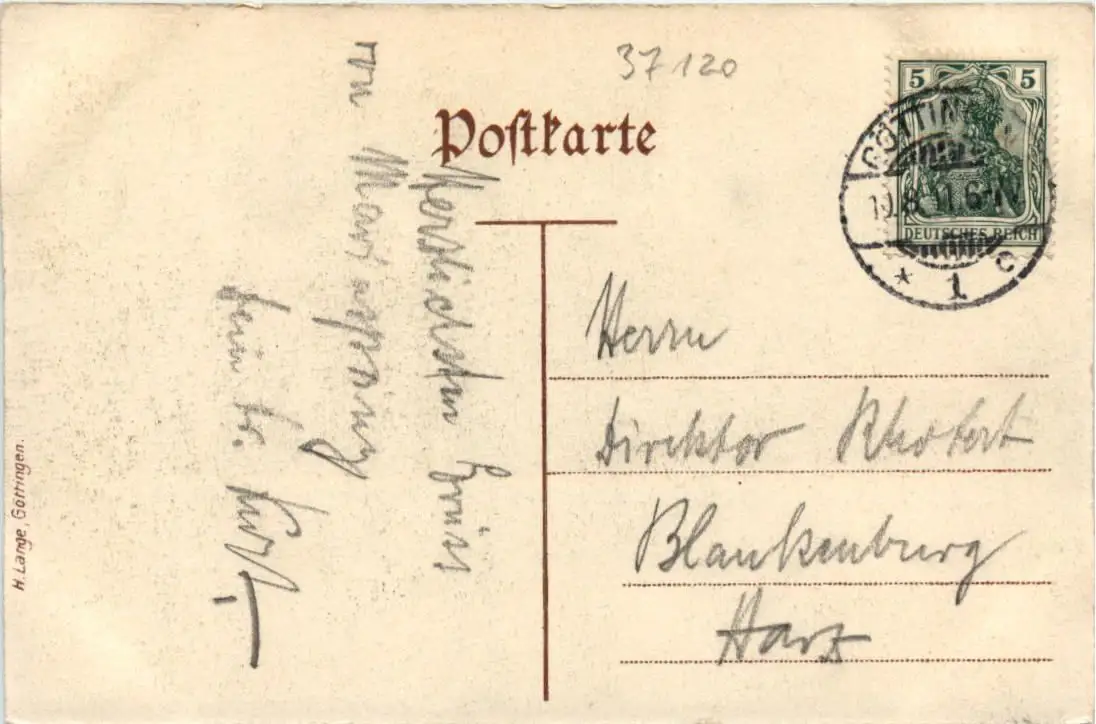 37120
Postkarte
5 5
DEUTSCHES REICH
GÖTTIN
.8.11.6-7N
* 1 c
Herrn
Direktor Rhotert
Blankenburg
Harz
Herzlichsten Gruss
von Mariaspring
H. Lange, Göttingen.